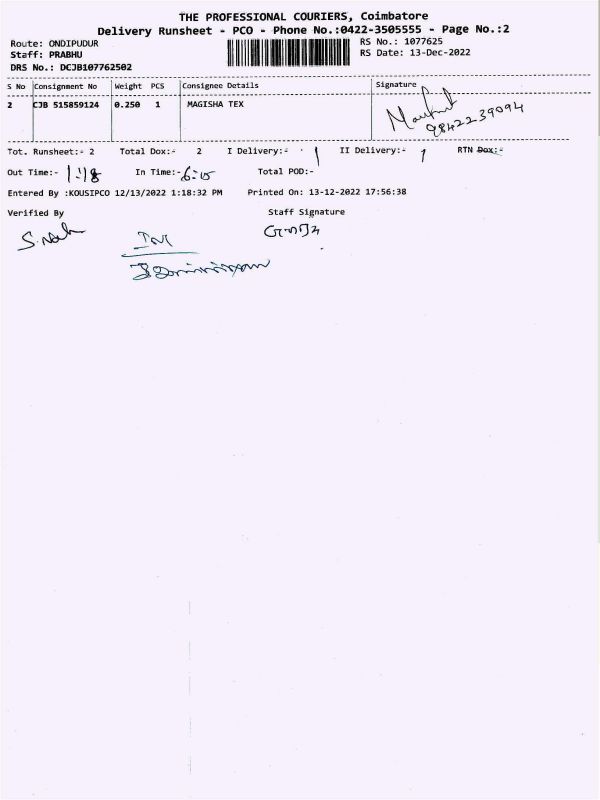 THE PROFESSIONAL COURIERS, Coimbatore
Delivery Runsheet - PCO - Phone No.:0422-3505555 - Page No.:2
Route: ONDIPUDUR RS No.: 1077625
Staff: PRABHU RS Date: 13-Dec-2022
DRS No.: DCJB107762502
S No Consignment No Weight PCS Consignee Details Signature
2 CJB 515859124 0.250 1 MAGISHA TEX
9842239094
Tot. Runsheet:- 2 Total Dox:- 2 I Delivery:- 1 II Delivery:- 1 RTN Dox:-
Out Time:- 1:18 In Time:- 6:15 Total POD:-
Entered By :KOUSIPCO 12/13/2022 1:18:32 PM Printed On: 13-12-2022 17:56:38
Verified By Staff Signature